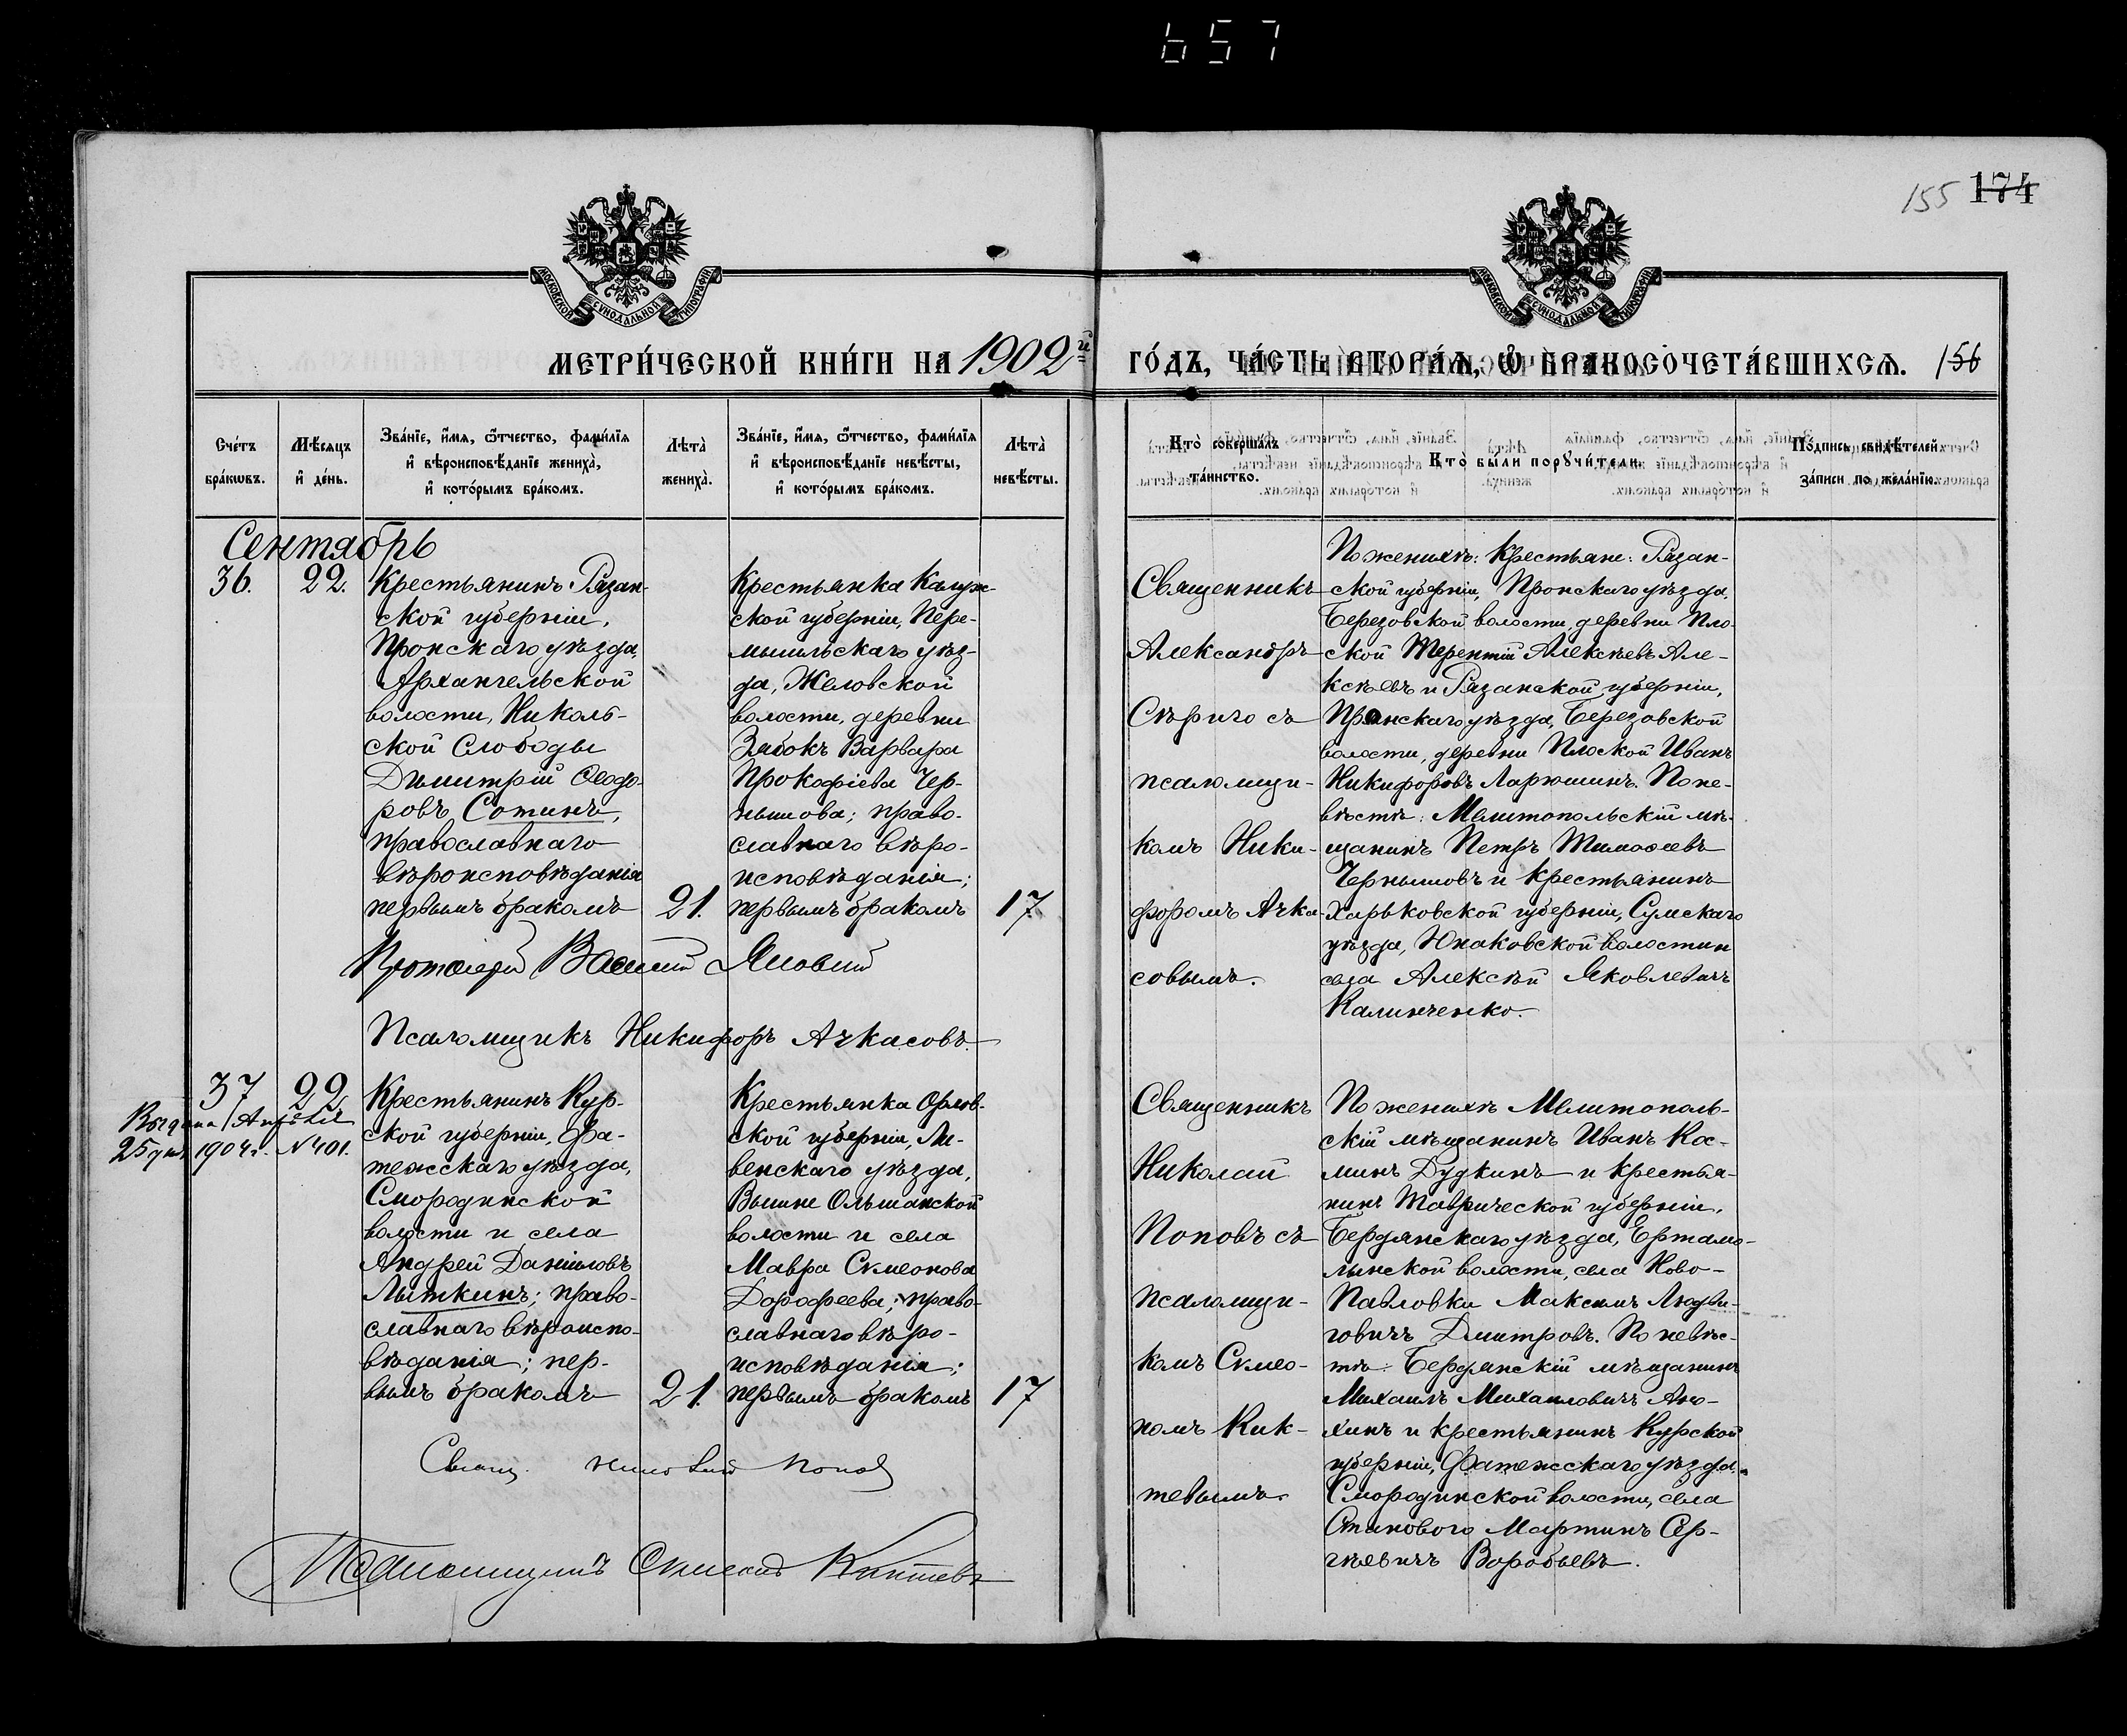 657
155 174
МОСКОВСКОЙ СѴНОДАЛЬНОЙ ТИПОГРАФІИ
МОСКОВСКОЙ СѴНОДАЛЬНОЙ ТИПОГРАФІИ
МЕТРИ́ЧЕСКОЙ КНИ́ГИ НА 1902й ГО́ДЪ, ЧА́СТЬ ВТОРА́Я, Ѿ БРАКОСОЧЕТА́ВШИХСѦ. 156
Сче́тъ бра́кѡвъ.
Мѣ́сяцъ и де́нь.
Зва́нїе, и́мя, ѻ҆́тчество, фами́лїя и вѣроисповѣ́данїе жениха̀, и кото́рымъ бра́комъ.
Лѣ́та жениха̀.
Зва́нїе, и́мя, ѻ҆́тчество, фами́лїя и вѣроисповѣ́данїе невѣ́сты, и кото́рымъ бра́комъ.
Лѣ́та невѣ́сты.
Кто̀ соверша́лъ та́инство.
Кто̀ бы́ли порꙋчи́тели.
По́дпись свидѣ́телей за́писи по жела́нїю.
Сентябрь
36. 22.
Крестьянинъ Рязан-
ской губерніи,
Пронскаго уѣзда,
Архангельской
волости, Николь-
ской Слободы
Димитрій Ѳеодо-
ровъ Сотинъ,
православнаго
вѣроисповѣданія
первымъ бракомъ
21.
Крестьянка Калуж-
ской губерніи, Пере-
мышльскаго уѣз-
да, Желовской
волости, деревни
Зябокъ Варвара
Прокофіева Чер-
нышова; право-
славнаго вѣро-
исповѣданія;
первымъ бракомъ
17
Священникъ
Александръ
Сѣриго съ
псаломщи-
комъ Ники-
форомъ Ачка-
совымъ.
По женихѣ: Крестьяне: Рязан-
ской губерніи, Пронскаго уѣзда,
Березовской волости, деревни Пло-
ской Терентій Алексѣевъ Але-
ксѣевъ и Рязанской губерніи,
Пронскаго уѣзда, Березовской
волости, деревни Плоской Иванъ
Никифоровъ Ларюшинъ. По не-
вѣстѣ: Мелитопольскій мѣ-
щанинъ Петръ Тимоѳеевъ
Чернышовъ и крестьянинъ
Харьковской губерніи, Сумскаго
уѣзда, Юнаковской волости и
села Алексѣй Яковлевичъ
Калинченко.
Протоіерей Василий Яновский
Псаломщикъ Никифоръ Ачкасовъ.
37 22
Выдана Апрѣля
25 дня 1904г. №401.
Крестьянинъ Кур-
ской губерніи, Фа-
тежскаго уѣзда,
Смородинской
волости и села
Андрей Даниловъ
Лыткинъ; право-
славнаго вѣроиспо-
вѣданія; пер-
вымъ бракомъ
21.
Крестьянка Орлов-
ской губерніи, Ли-
венскаго уѣзда,
Вышне Ольшанской
волости и села
Мавра Симеонова
Дорофеева; право-
славнаго вѣро-
исповѣданія;
первымъ бракомъ
17
Священникъ
Николай
Поповъ съ
псаломщи-
комъ Симео-
номъ Кик-
тевымъ.
По женихѣ Мелитополь-
скій мѣщанинъ Иванъ Кос-
минъ Дудкинъ и крестья-
нинъ Таврической губерніи,
Бердянскаго уѣзда,
волости, села Ново-
Павловки Максимъ Людви-
говичъ Дмитровъ. По невѣс-
тѣ: Бердянскій мѣщанинъ
Михаилъ Михаиловичъ Аню-
хинъ и крестьянинъ Курской
губерніи, Фатежскаго уѣзда,
Смородинской волости, села
Станового Мартинъ Сер-
гѣевичъ Воробьевъ.
Свящ. Николай Попов
Псаломщикъ Симеонъ Киктевъ